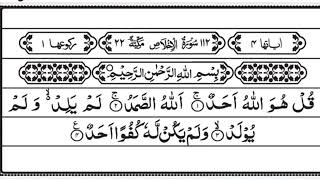 اٰیاتها ۴ ۱۱۲ سُوْرَةُ الْاِخْلَاصِ مَكِّيَّةٌ ۲۲ رکوعها ۱
بِسْمِ اللهِ الرَّحْمٰنِ الرَّحِيْمِ
قُلْ هُوَ اللهُ اَحَدٌ ۚ۱ اَللهُ الصَّمَدُ ۚ۲ لَمْ يَلِدْ ۙ۬ وَ لَمْ
يُوْلَدْ ۙ۳ وَلَمْ يَكُنْ لَّهٗ كُفُوًا اَحَدٌ ۴